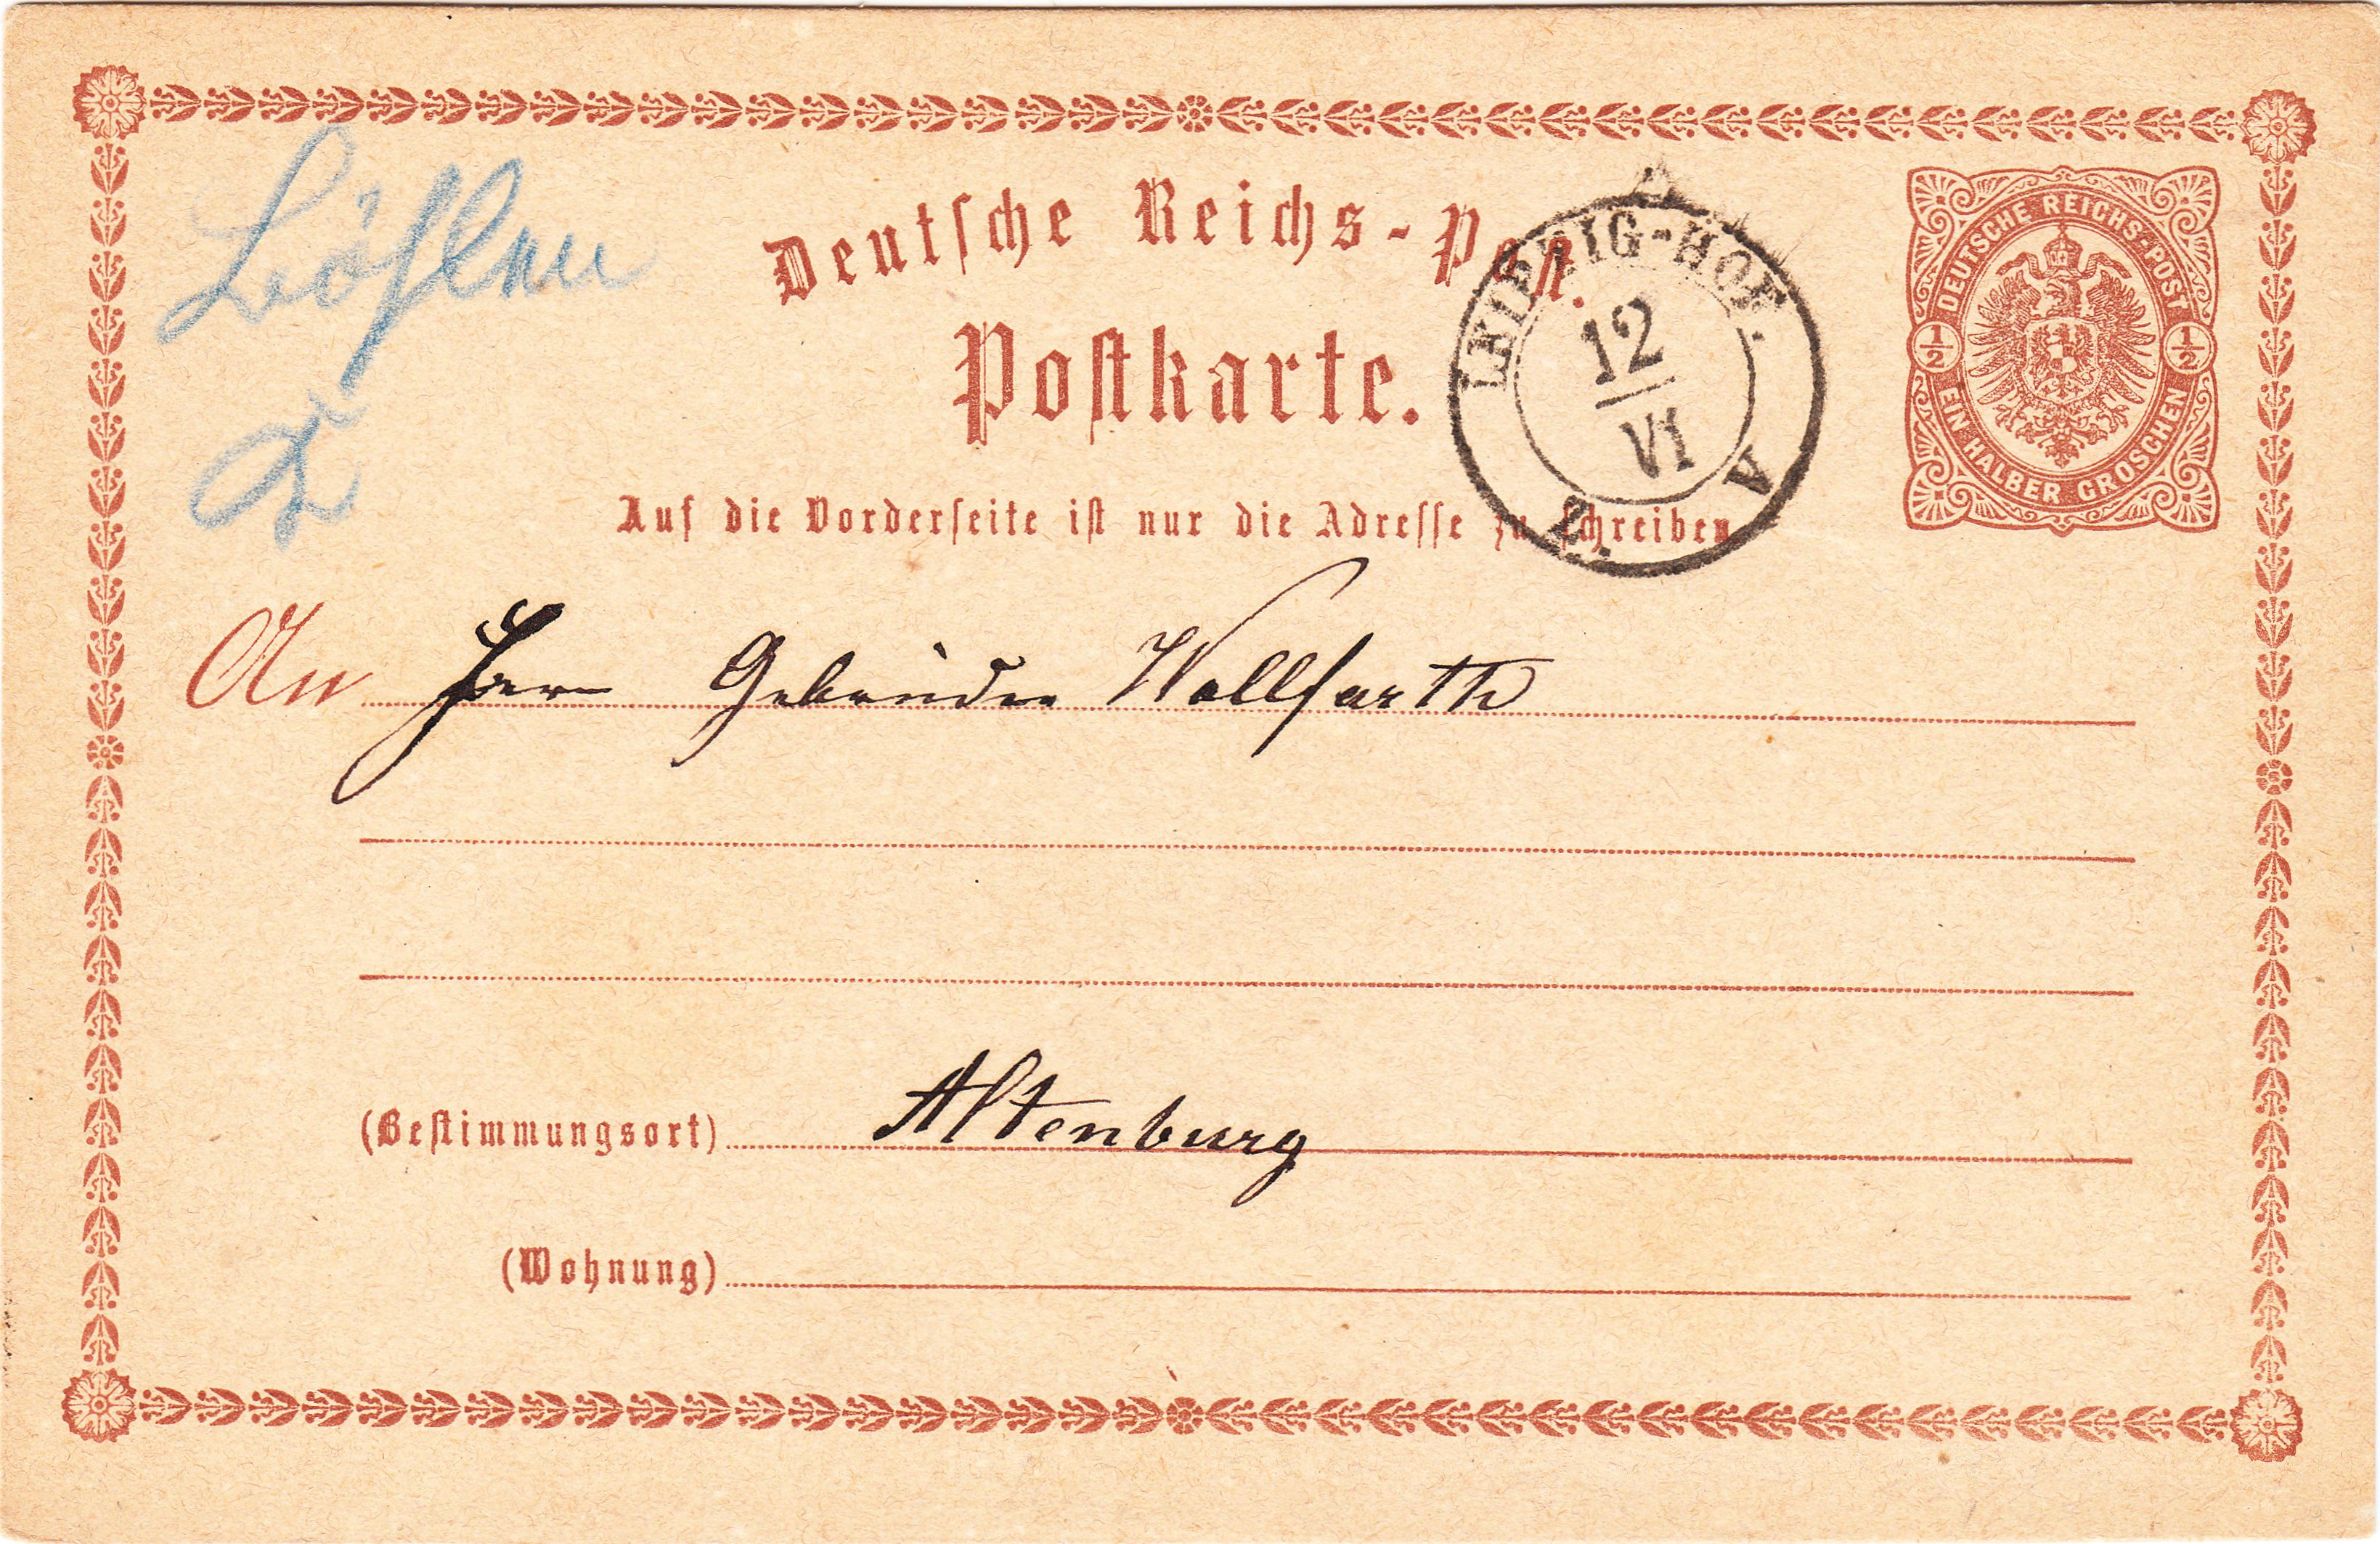 Deutsche Reichs-Post.
Postkarte.
LEIPZIG-HOF.
12
VI
Z. V
DEUTSCHE REICHS-POST
1/2 1/2
EIN HALBER GROSCHEN
Auf die Vorderseite ist nur die Adresse zu schreiben
An Herrn Gebrüder Wollfarth
(Bestimmungsort) Altenburg
(Wohnung)